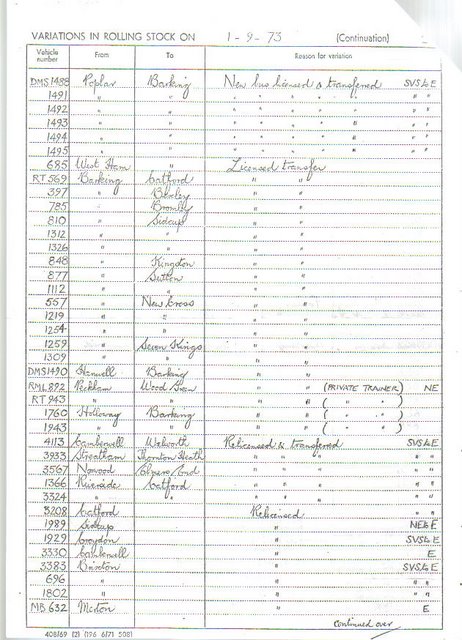 VARIATIONS IN ROLLING STOCK ON 1-9-73 (Continuation)
Vehicle number From To Reason for variation
DMS1488 Poplar Barking New bus licensed & transferred SVS & E
1491 " " " " " " " " "
1492 " " " " " " " " "
1493 " " " " " " " " "
1494 " " " " " " " " "
1495 " " " " " " " " "
685 West Ham " Licensed transfer
RT569 Barking Catford " "
397 " Bexley " "
785 " Bromley " "
810 " Sidcup " "
1312 " " " "
1326 " " " "
848 " Kingston " "
877 " Sutton " "
1112 " " " "
557 " New Cross " "
1219 " " " "
1254 " " " "
1259 " Seven Kings " "
1309 " " " "
DMS1490 Hanwell Barking " "
RML892 Peckham Wood Green " " (PRIVATE TRAINER) NE
RT943 " " " " ( " " )
1760 Holloway Barking " " ( " " )
1943 " " " " ( " " )
4113 Camberwell Walworth Relicensed & transferred SVS & E
3933 Streatham Thornton Heath " " " " "
3567 Norwood Elmers End " " " " "
1366 Riverside Catford " " " " "
3324 " " " " " " "
3208 Catford Relicensed " "
1989 Sidcup " NE & E
1929 Croydon " SVS & E
3330 Camberwell " E
3383 Brixton " SVS & E
696 " " " "
1802 " " " "
MB632 Merton " E
continued over
408/69 (2) (196 6/71 508)